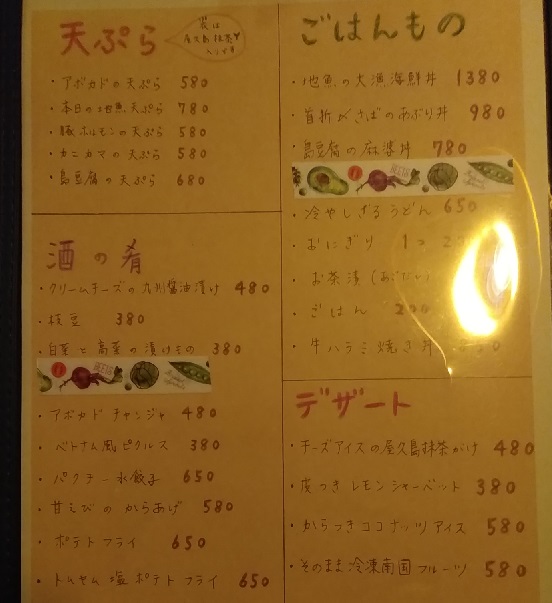 天ぷら
衣は
屋久島抹茶
入りです
・アボカドの天ぷら 580
・本日の地魚天ぷら 780
・豚ホルモンの天ぷら 580
・カニカマの天ぷら 580
・島豆腐の天ぷら 680
酒の肴
・クリームチーズの九州醤油漬け 480
・枝豆 380
・白菜と高菜の漬けもの 380
・アボカドチャンジャ 480
・ベトナム風ピクルス 380
・パクチー水餃子 650
・甘えびのからあげ 580
・ポテトフライ 650
・トムヤム塩ポテトフライ 650
ごはんもの
・地魚の大漁海鮮丼 1380
・首折れさばのあぶり丼 980
・島豆腐の麻婆丼 780
・冷やしざるうどん 650
・おにぎり 1コ
・お茶漬
・ごはん 200
・牛ハラミ焼き丼
デザート
・チーズアイスの屋久島抹茶がけ 480
・皮つきレモンシャーベット 380
・からつきココナッツアイス 580
・そのまま冷凍南国フルーツ 580